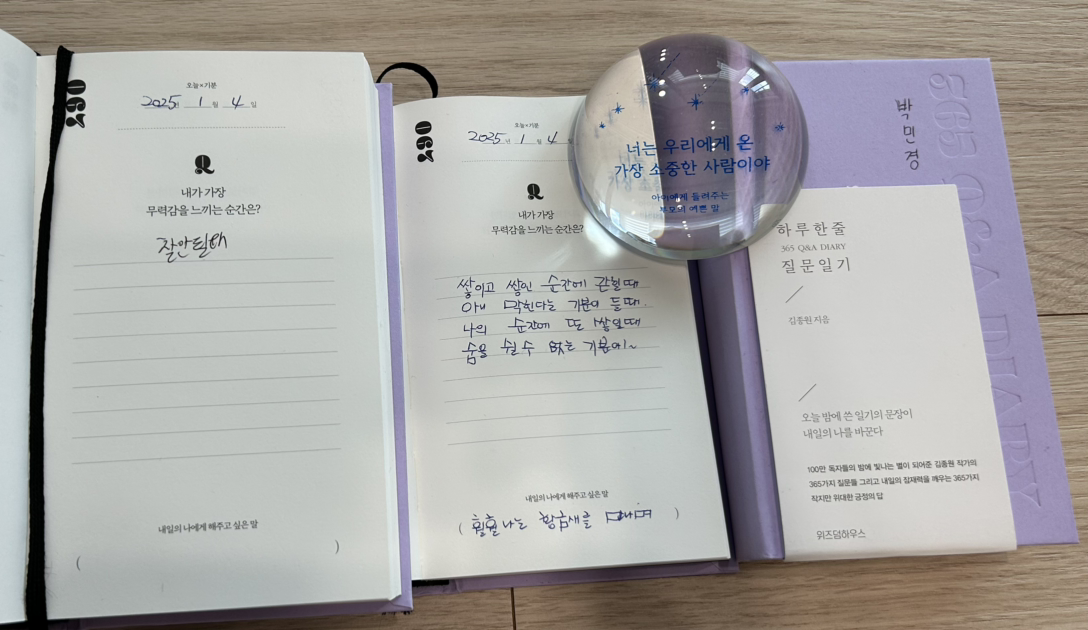 290
오늘×기분
2025년 1월 4일
Q
내가 가장
무력감을 느끼는 순간은?
잘 안될 때
내일의 나에게 해주고 싶은 말
( )
290
오늘×기분
2025년 1월 4
Q
내가 가장
무력감을 느끼는 순간은?
쌓이고 쌓인 순간에 갇힐 때
아니 막힌다는 기분이 들 때.
나의 순간에 또 쌓일 때
숨을 쉴 수 없는 기분이~
내일의 나에게 해주고 싶은 말
( 훨훨 나는 황금새를 )
너는 우리에게 온
가장 소중한 사람이야
아이에게 들려주는
부모의 예쁜 말
박민경
365 Q&A DIARY
하루 한 줄
365 Q&A DIARY
질문 일기
김종원 지음
오늘 밤에 쓴 일기의 문장이
내일의 나를 바꾼다
100만 독자들의 밤에 빛나는 별이 되어준 김종원 작가의
365가지 질문들 그리고 내일의 잠재력을 깨우는 365가지
작지만 위대한 긍정의 답
위즈덤하우스